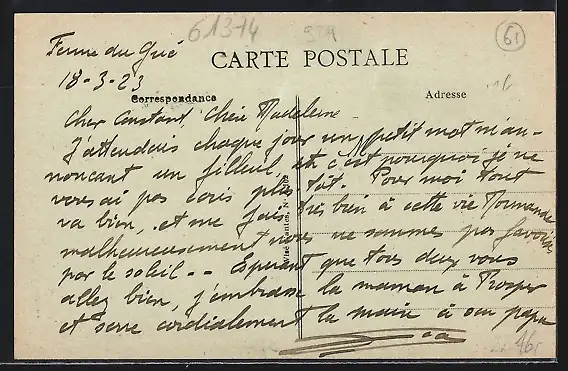 61374
61
Ferme du Gué
CARTE POSTALE
18-3-23
Correspondance
Adresse
Cher Constant, Chère Madeleine
J'attendais chaque jour un petit mot m'an-
nonçant un filleul, et c'est pourquoi je ne
vous ai pas écris plus tôt. Pour moi tout
va bien, et me fais très bien à cette vie Normande
malheureusement nous ne sommes pas favorisés
par le soleil -- Espérant que tous deux vous
allez bien, j'embrasse la maman à Prosper
et serre cordialement la main à son papa
46